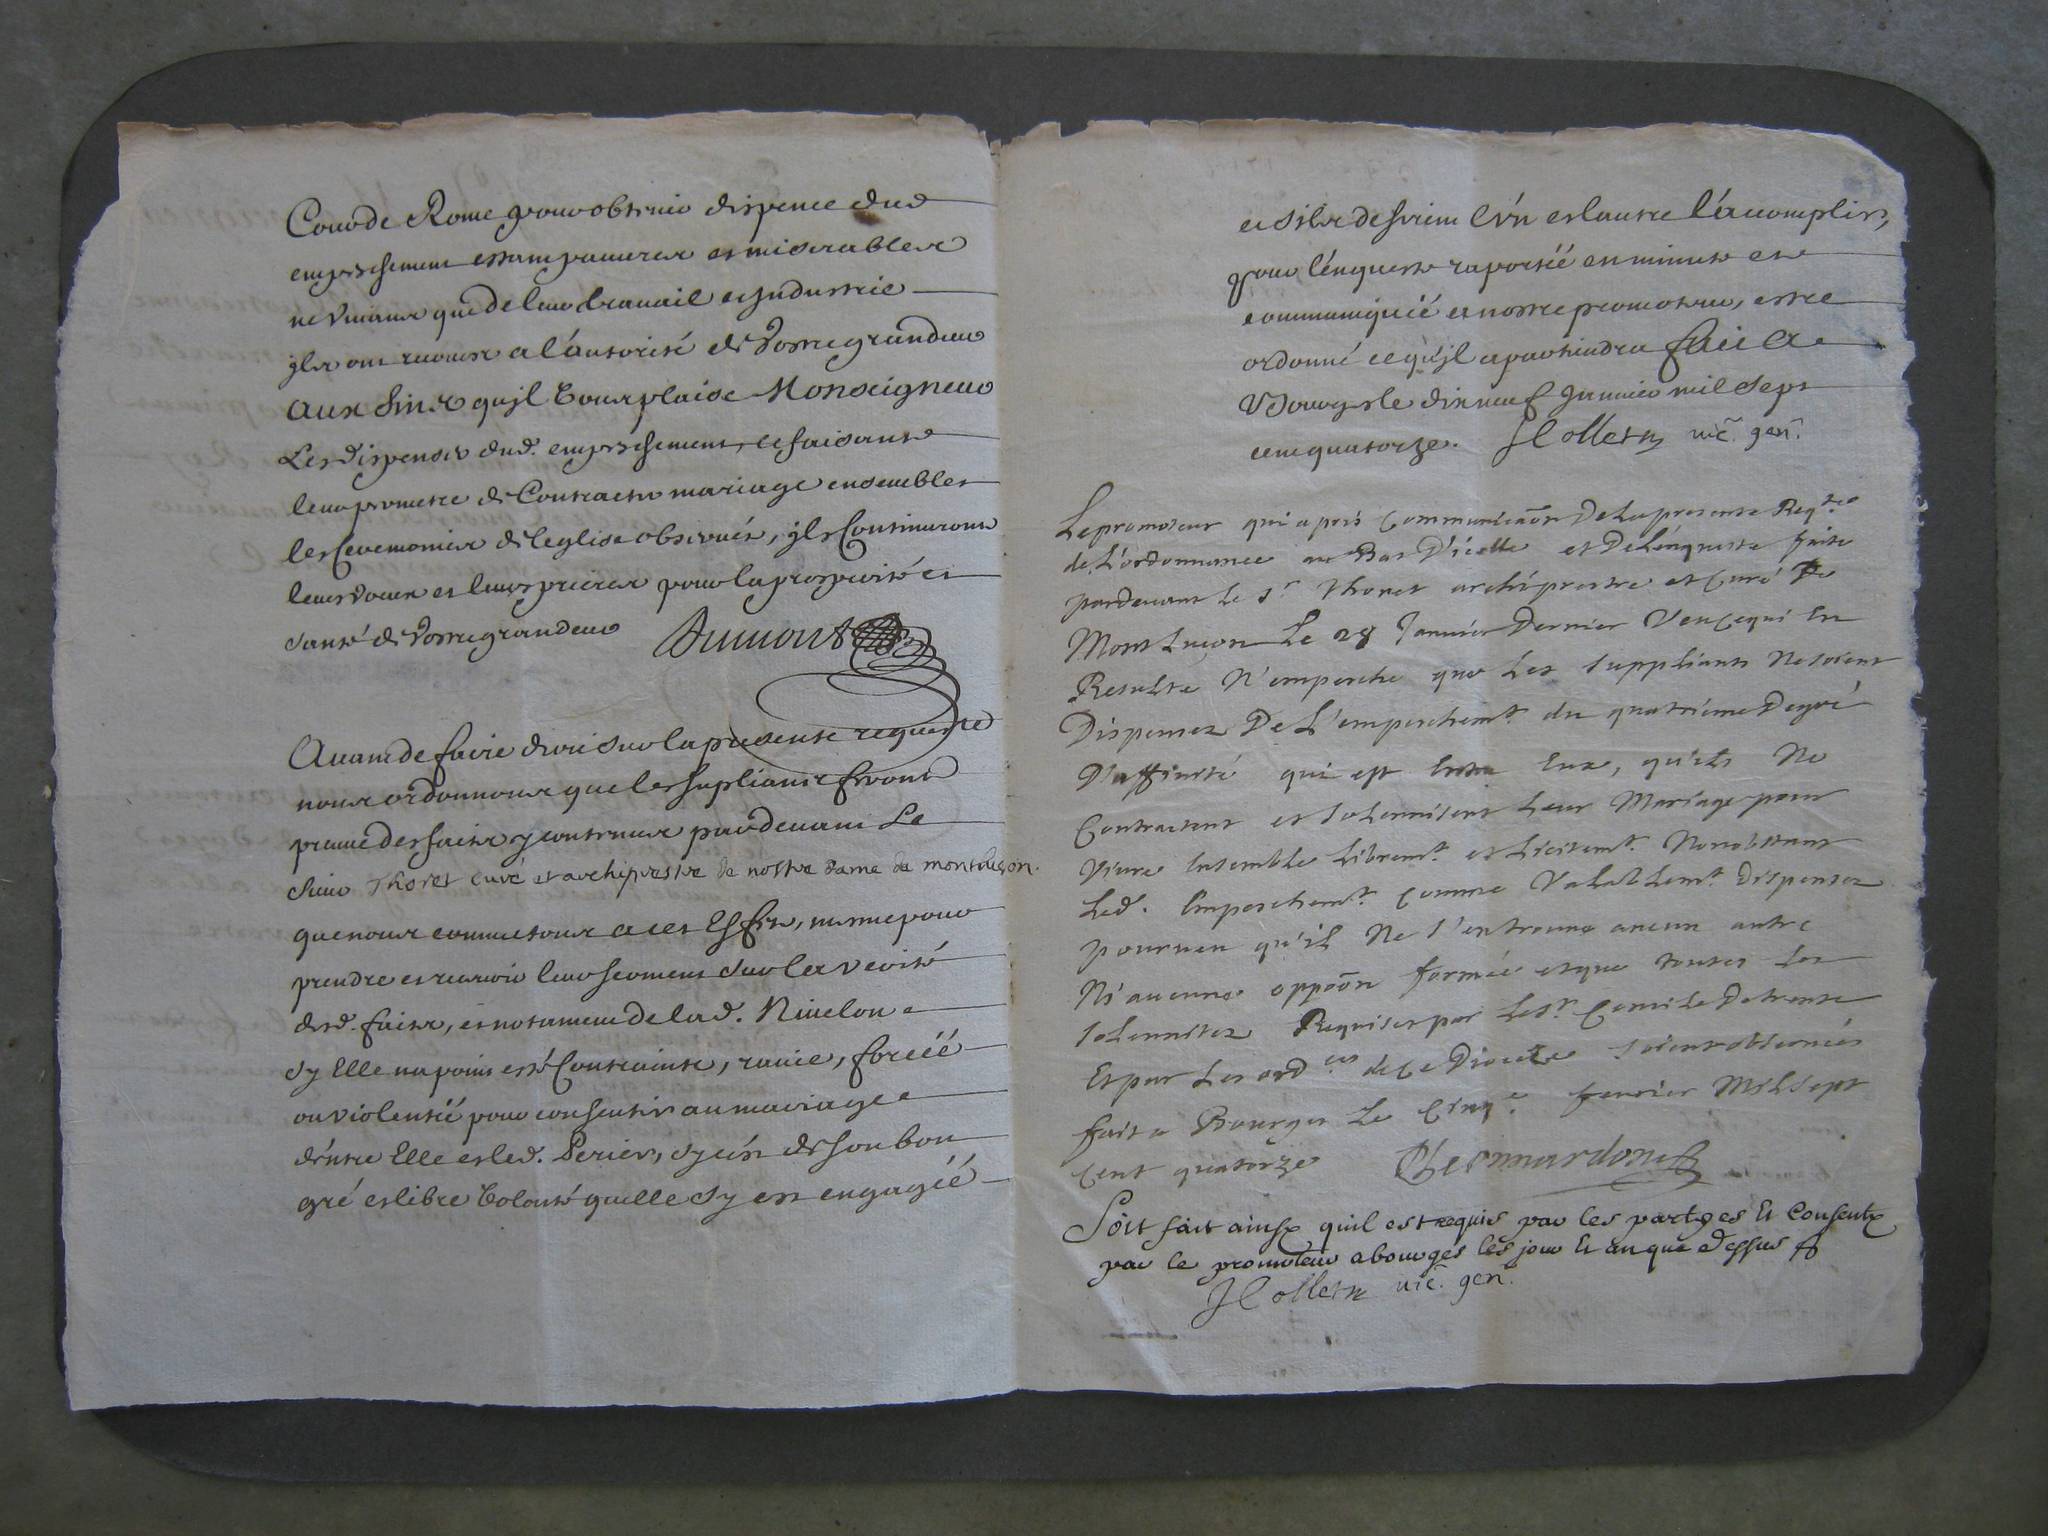 Cour de Rome pour obtenir dispence dud
empeschement estant pauures et miserables
ne viuans que de leur trauail et Industrie
jls ont recours a l'autorité de Vostre grandeur
Aux fins qu'jl Vous plaise Monseigneur
Les dispenser dud. empeschement, ce faisant
leur promettre de Contracter mariage ensembles
les Ceremonies de l'eglise obseruées, jls Continueront
leurs voeux et leurs prieres pour la prosperité et
santé de Vostre grandeur Dumont
Auant de faire droit sur la presente requeste
nous ordonnons que les supliants feront
preuue des faits y contenus pardeuant Le
sieur Thoret curé et archiprestre de nostre dame de montluçon.
que nous commetons a cet Effet, mesme pour
prendre et receuoir leur serment sur la verité
desd. faits, et notament de lad. Niuelon
sy Elle na point esté Contrainte, rauie, forcéé
ou violentéé pour consentir au mariage
d'entre Elle et led. Perier, sy c'est de son bon
gré et libre Volonté qu'elle sy est engagéé
et s'ils desirent l'vn et l'autre l'acomplir,
pour l'enqueste raportéé en minute et
communiquéé a nostre promoteur, estre
ordonné ce qu'jl apartiendra fait a
Bourges le dix neuf Januier mil sept
cent quatorze. J Collesn vic. gen.
Le promoteur qui a pris communicãon De La presente Reqte
de L'ordonnance au Bas D'icelle et De L'enqueste faite
pardeuant Le Sr Thoret archiprestre et Curé De
Mont Luçon Le 28 Januier Dernier Veu Ce qui En
Resulte N'empesche que Les suppliants Ne soient
Dispensez De L'empeschemt. du quatrieme Degré
D'affinité qui est Entre Eux, qu'ils Ne
Contractent et solemnisent Leur Mariage pour
Viure Ensemble Libremt. et Licitemt. Nonobstant
Led. Empeschemt. Comme Valablemt. Dispensez
pourueu qu'il Ne s'en trouue aucun autre
Ni aucune oppõon formée et que toutes Les
solemnitez Requises par Le St. Concile De trente
Et par Les ordces de Ce Dioceze soient obseruées
fait a Bourges Le Cinqe. feurier Mil Sept
Cent quatorze
Soit fait ainsy quil est requis par les partyes Et Consenty
par le promoteur a bourges les jour Et an que dessus
J Collesn vic. gen.